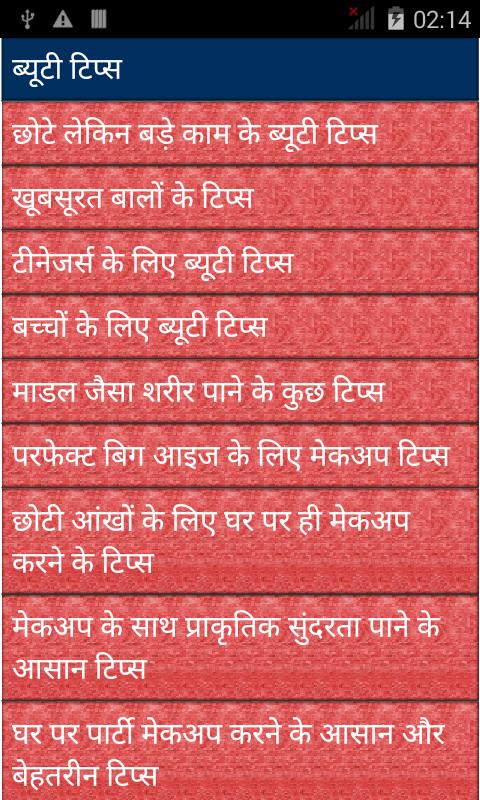 02:14
ब्यूटी टिप्स
छोटे लेकिन बड़े काम के ब्यूटी टिप्स
खूबसूरत बालों के टिप्स
टीनेजर्स के लिए ब्यूटी टिप्स
बच्चों के लिए ब्यूटी टिप्स
माडल जैसा शरीर पाने के कुछ टिप्स
परफेक्ट बिग आइज के लिए मेकअप टिप्स
छोटी आंखों के लिए घर पर ही मेकअप
करने के टिप्स
मेकअप के साथ प्राकृतिक सुंदरता पाने के
आसान टिप्स
घर पर पार्टी मेकअप करने के आसान और
बेहतरीन टिप्स